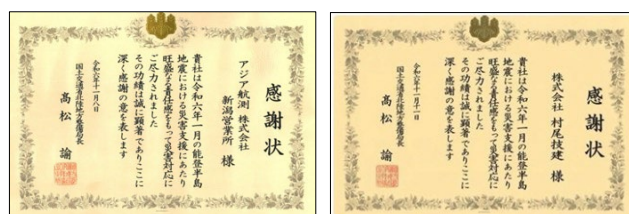 感謝状
アジア航測 株式会社
新潟営業所 様
貴社は令和六年一月の能登半島
地震における災害支援にあたり
旺盛な責任感をもって災害対応に
ご尽力されました
その功績は誠に顕著でありここに
深く感謝の意を表します
令和六年十一月八日
国土交通省北陸地方整備局長
髙松 諭
感謝状
株式会社 村尾技建 様
貴社は令和六年一月の能登半島
地震における災害支援にあたり
旺盛な責任感をもって災害対応に
ご尽力されました
その功績は誠に顕著でありここに
深く感謝の意を表します
令和六年十一月十一日
国土交通省北陸地方整備局長
髙松 諭